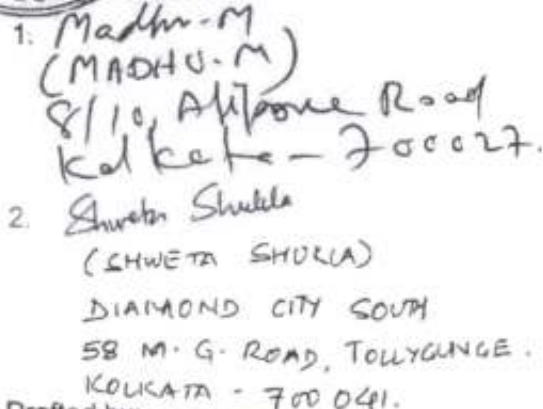 1. Madhu.M
(MADHU.M)
8/10, Alipore Road
Kolkata - 700027.
2. Shweta Shukla
(SHWETA SHUKLA)
DIAMOND CITY SOUTH
58 M.G. ROAD, TOLLYGUNGE.
KOLKATA - 700 041.
Drafted by: